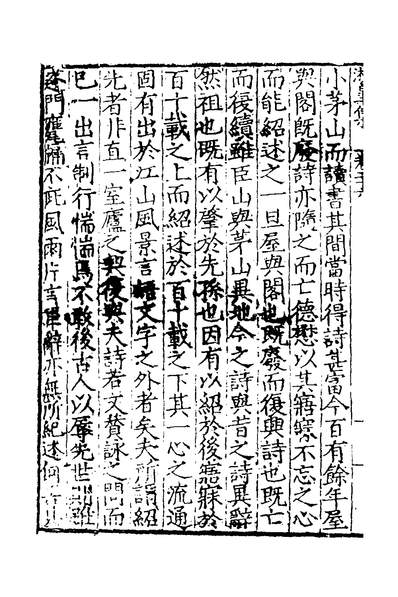 小茅山而讀書其間當時得詩甚富今百有餘年屋
與閣既廢詩亦隨之而亡德懋以其寤寐不忘之心
而能紹述之一旦屋與閣也既廢而復興詩也既亡
而復續雖臣山與茅山異地今之詩與昔之詩異辭
然祖也既有以肇於先孫也因有以紹於後寤寐於
百十載之上而紹述於百十載之下其一心之流通
固有出於江山風景言語文字之外者矣夫所謂紹
先者非直一室廬之契復與夫詩若文賛詠之間而
巳一出言制行惴惴焉不敢後古人以辱先世則雖
蓬門甕牖不庇風雨片言隻辭亦無所紀述何